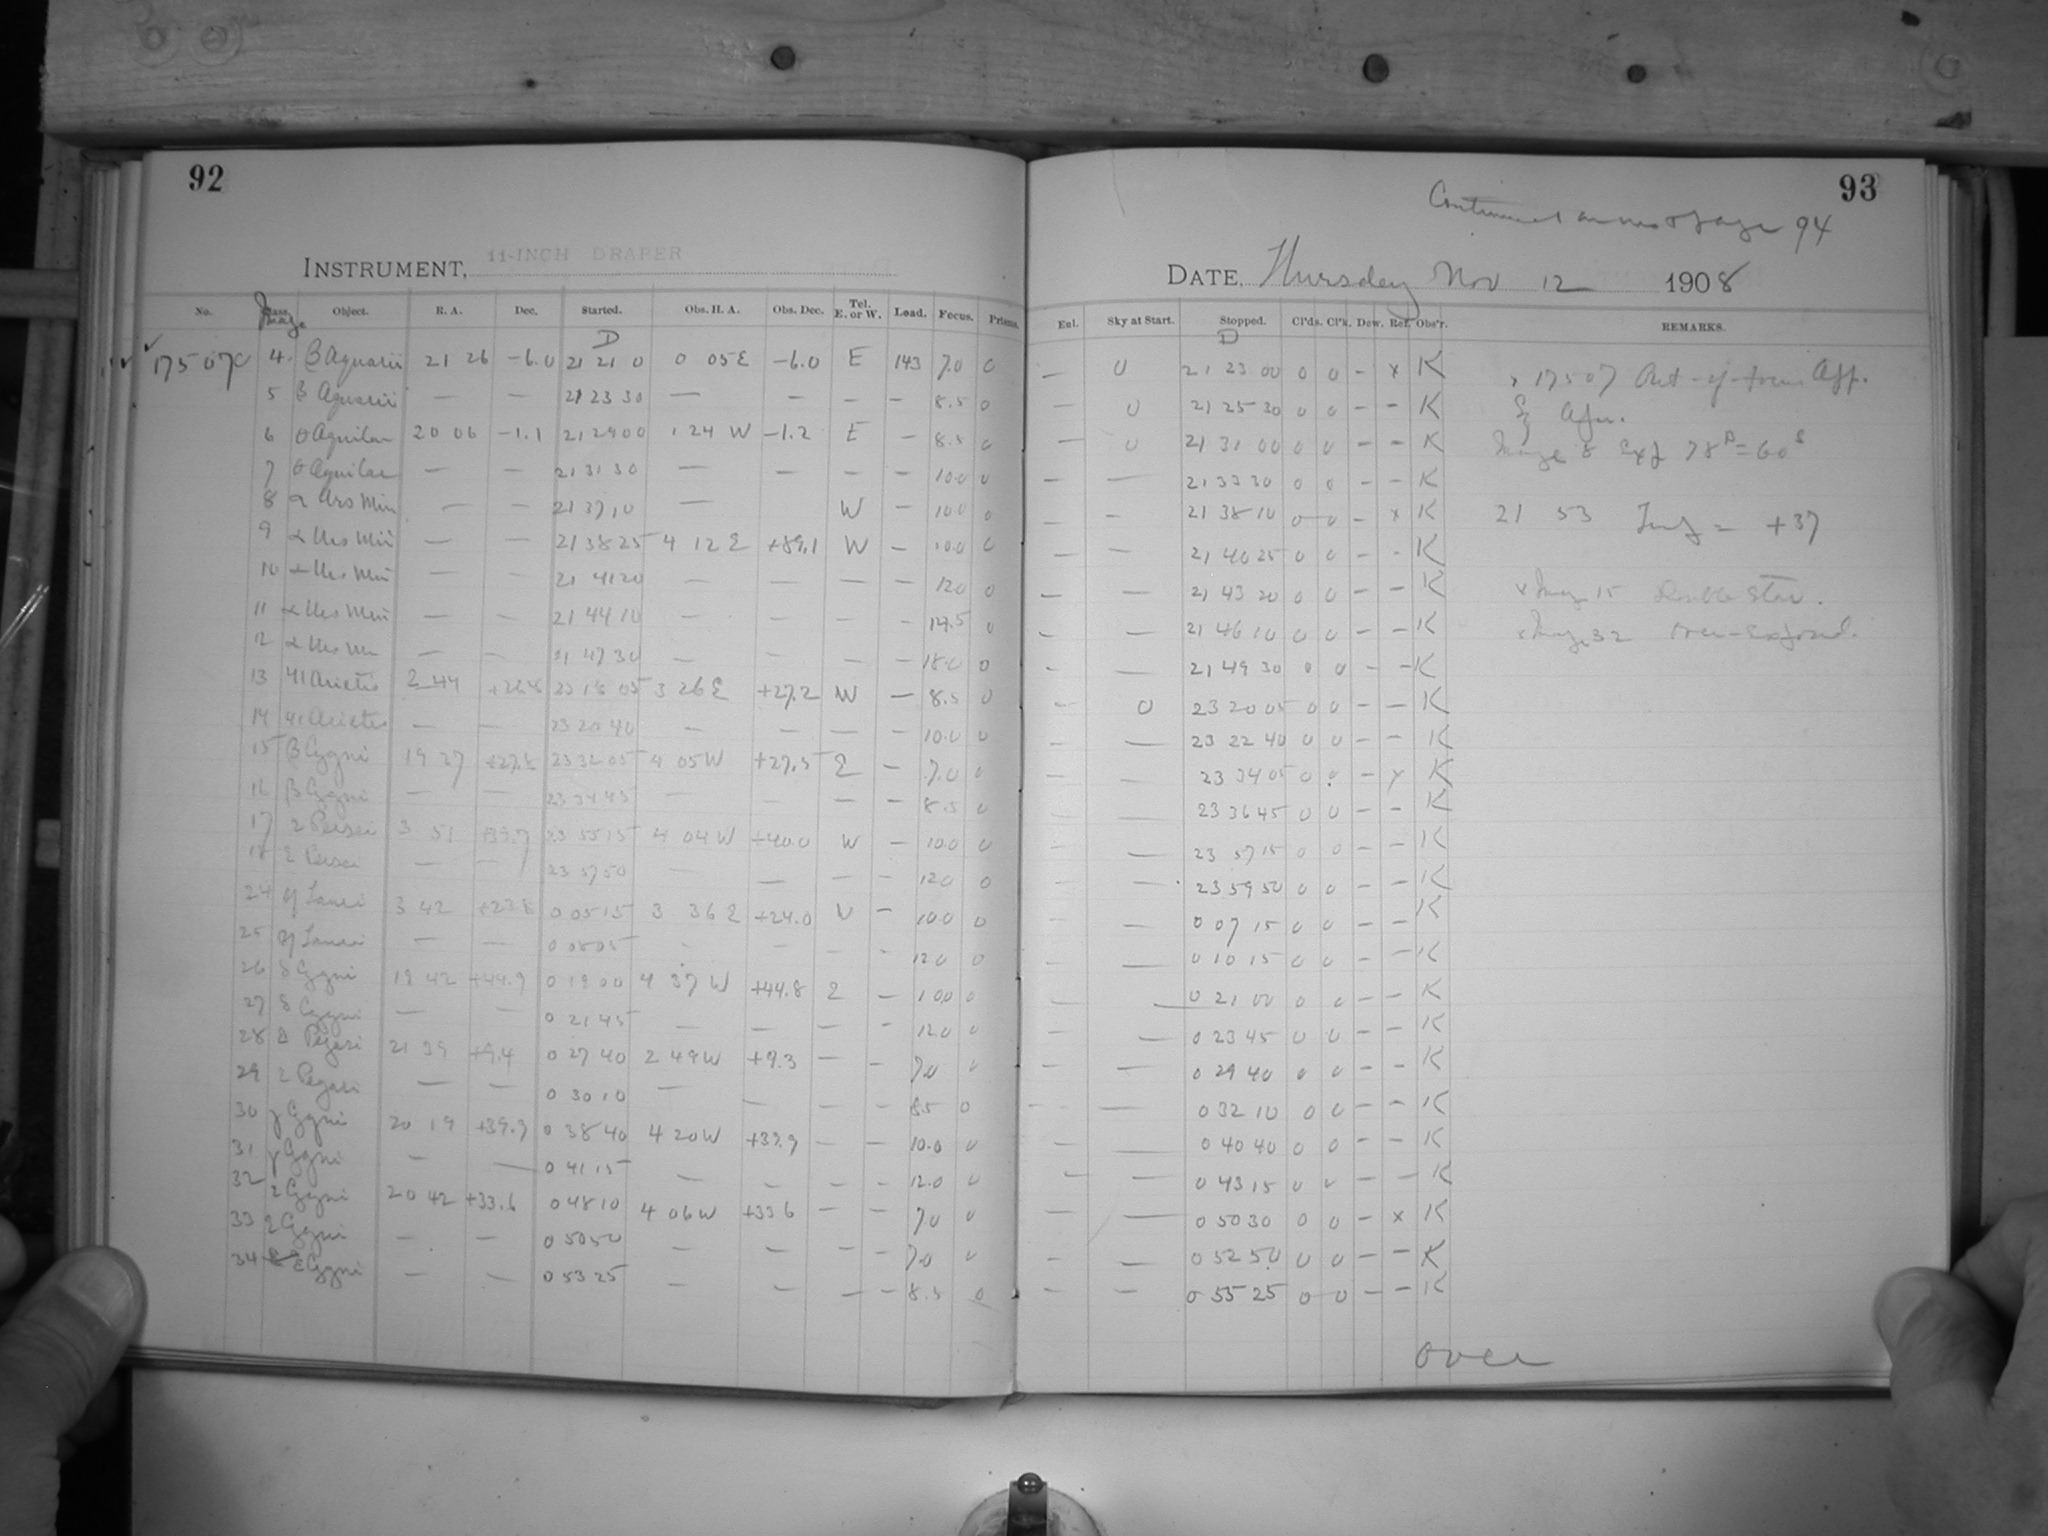 92
INSTRUMENT, 11-INCH DRAPER
No. Image Object. R. A. Dec. Started. Obs. H. A. Obs. Dec. Tel. E. or W. Load. Focus. Prisms.
D
17507C 4 β Aquarii 21 26 -6.0 21 21 0 0 05 E -6.0 E 143 7.0 0
5 β Aquarii — — 21 23 30 — — — — 8.5 0
6 θ Aquilae 20 06 -1.1 21 29 00 1 24 W -1.2 E — 8.5 0
7 θ Aquilae — — 21 31 30 — — — — 10.0 0
8 α Urs Min — — 21 37 10 — W — 10.0 0
9 α Urs Min — — 21 38 25 4 12 E +89.1 W — 10.0 0
10 α Urs Min — — 21 41 20 — — — — 12.0 0
11 α Urs Min — — 21 44 10 — — — — 0
12 α Urs Min — — 21 47 30 — — — — 18.0 0
13 41 Arietis 2 44 +26.8 23 18 05 3 26 E +27.2 W — 8.5 0
14 41 Arietis — — 23 20 40 — — — — 10.0 0
15 β Cygni 19 27 23 32 05 4 05 W +27.5 E — 7.0 0
16 β Cygni — — 23 34 45 — — — — 8.5 0
17 Persei 3 51 +39.7 23 55 15 4 04 W +40.0 W — 10.0 0
18 Persei — — 23 57 50 — — — — 12.0 0
24 Tauri 3 42 +23.8 0 05 15 3 36 E +24.0 — 10.0 0
25 Tauri — — 0 — — — — 12.0 0
26 δ Cygni 19 42 +44.9 0 19 00 4 37 W +44.8 E — 10.0 0
27 δ Cygni — — 0 21 45 — — — — 12.0 0
28 Pegasi 21 39 +9.4 0 27 40 2 49 W +9.3 — — 7.0 0
29 Pegasi — — 0 30 10 — — — — 8.5 0
30 γ Cygni 20 19 +39.9 0 38 40 4 20 W +39.9 — — 10.0 0
31 γ Cygni — — 0 41 15 — — — — 12.0 0
32 Cygni 20 42 +33.6 0 48 10 4 06 W +33.6 — — 7.0 0
33 Cygni — — 0 50 50 — — — — 7.0 0
34 ε Cygni — — 0 53 25 — — — — 8.5 0
93
Continued on page 94
DATE, Thursday Nov 12 1908
Eul. Sky at Start. Stopped. Cl'ds. Cl'k. Dew. Ref. Obs'r. REMARKS.
D
— 0 21 23 00 0 0 - x K x 17507 Out-of-focus
— 0 21 25 30 0 0 - - K
— 0 21 31 00 0 0 - - K Image 8 Exp 78ᴾ = 60ˢ
— — 21 33 30 0 0 - - K
— — 21 38 10 0 0 - x K 21 53 = +37
— — 21 40 25 0 0 - - K
— — 21 43 20 0 0 - - K x Image 15 Double Star.
— — 21 46 10 0 0 - - K x Image 32 over-exposed.
— — 21 49 30 0 0 - - K
0 23 20 05 0 0 - - K
— — 23 22 40 0 0 - - K
— — 23 34 05 0 0 - x K
— 23 36 45 0 0 - - K
— — 23 57 15 0 0 - - K
— — 23 59 50 0 0 - - K
— — 0 07 15 0 0 - - K
— — 0 10 15 0 0 - - K
— — 0 21 00 0 0 - - K
— — 0 23 45 0 0 - - K
— — 0 29 40 0 0 - - K
— — 0 32 10 0 0 - - K
— — 0 40 40 0 0 - - K
— — 0 43 15 0 0 - - K
— — 0 50 30 0 0 - x K
— — 0 52 50 0 0 - - K
— — 0 55 25 0 0 - - K
over